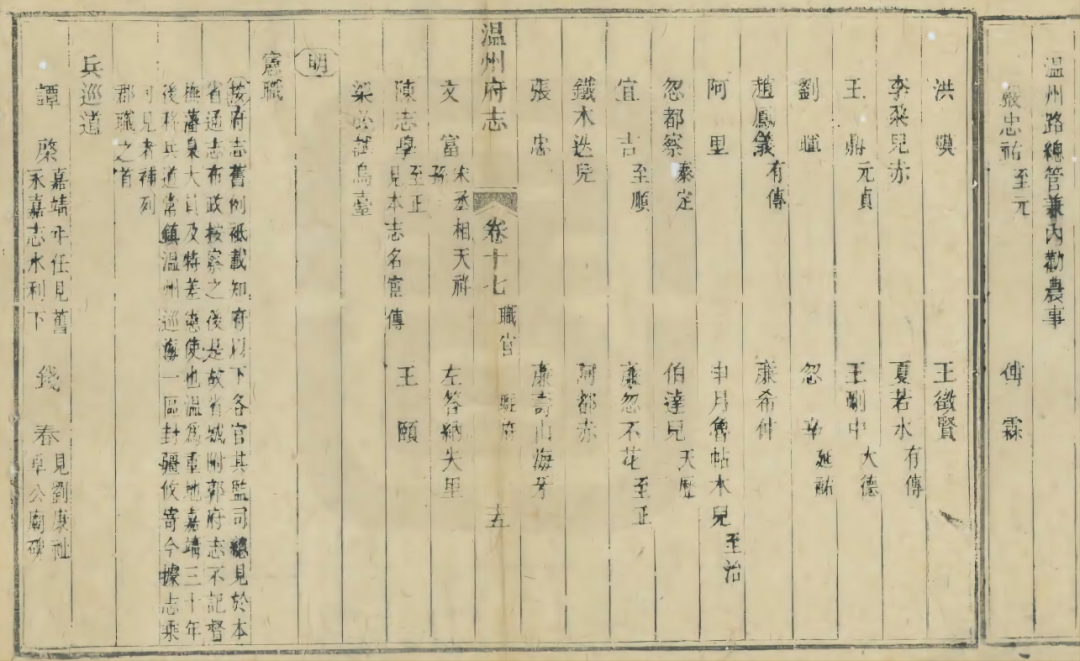 温州路總管兼內勸農事
嚴忠祐至元 傅霖
洪 王徵賢
李飛兒赤 夏若水有傳
王鼎元貞 王剛中大德
劉暉 忽辛延祐
趙鳳儀有傳 廉希仲
阿里 申月魯帖木兒至治
忽都察泰定 伯達兒天歷
宜吉至順 廉忽不花至正
鐵木迭兒 阿都赤
張忠 廉壽山海牙
温州府志 卷十七 職官 五
文富宋丞相天祥孫 左答納失里
陳志學至正見本志名宦傳 王頤
梁 烏臺
明
憲職
按府志舊例祗載知府以下各官其監司總見於本
省通志布政按察之後是故省城附郭府志不記督
撫藩臬大員及特差 使也温為重地嘉靖三十年
後稱兵道常鎮温州巡 一區封疆攸寄今據志乘
可見者補列
郡職之首
兵巡道
譚棨嘉靖年任見舊永嘉志水利下 錢春見劉康祉卓公廟碑